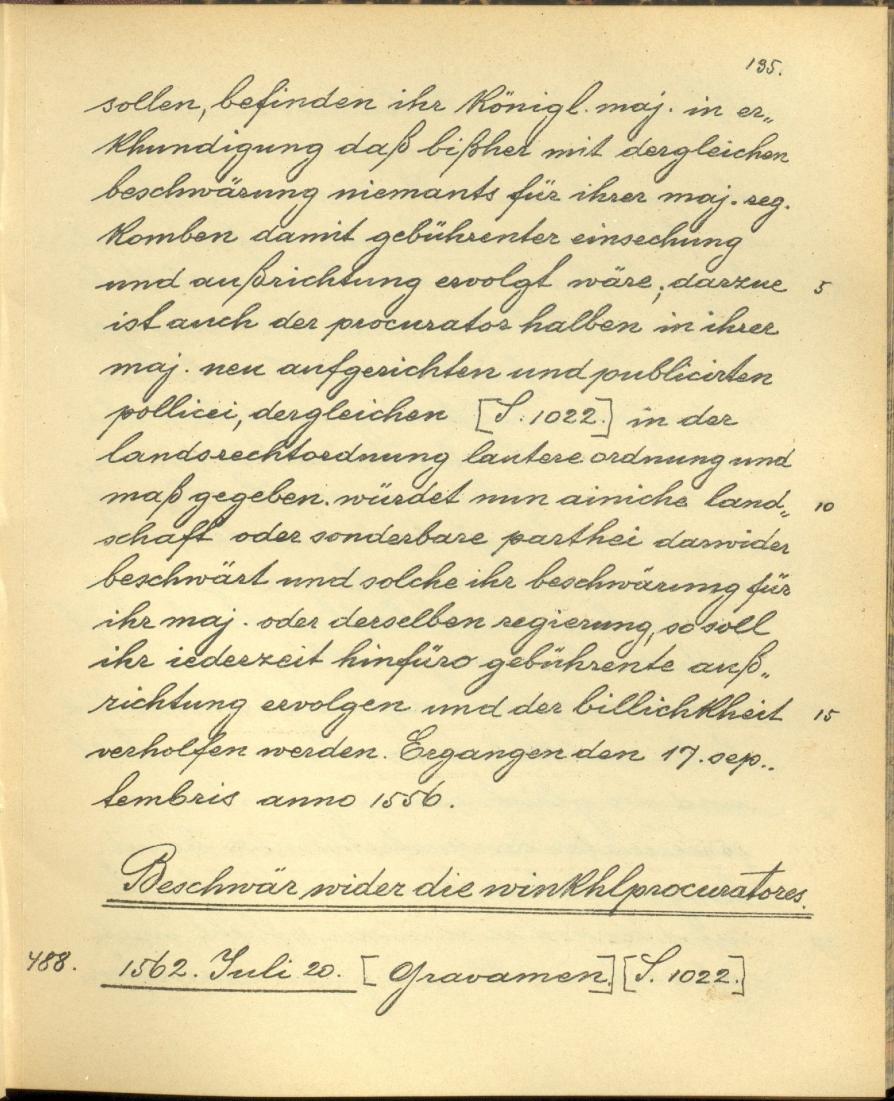 195.
sollen, befinden ihr Königl. maj. in er„
khundigung daß bißher mit dergleichen
beschwärung niemants für ihrer maj. reg.
komben damit gebührenter einsechung
und außrichtung ervolgt wäre; darzue 5
ist auch der procurator halben in ihrer
maj. neu aufgerichten und publicirten
pollicei, dergleichen [S. 1022.] in der
landsrechtordnung lautere ordnung und
maß gegeben. würdet nun ainiche land„ 10
schaft oder sonderbare parthei darwider
beschwärt und solche ihr beschwärung für
ihr maj. oder derselben regierung, so soll
ihr iederzeit hinfüro gebührente auß„
richtung ervolgen und der billichkheit 15
verholfen werden. Ergangen den 17. sep„
tembris anno 1556.
Beschwär wider die winkhlprocuratores.
488. 1562. Juli 20. [Gravamen.] [S. 1022.]